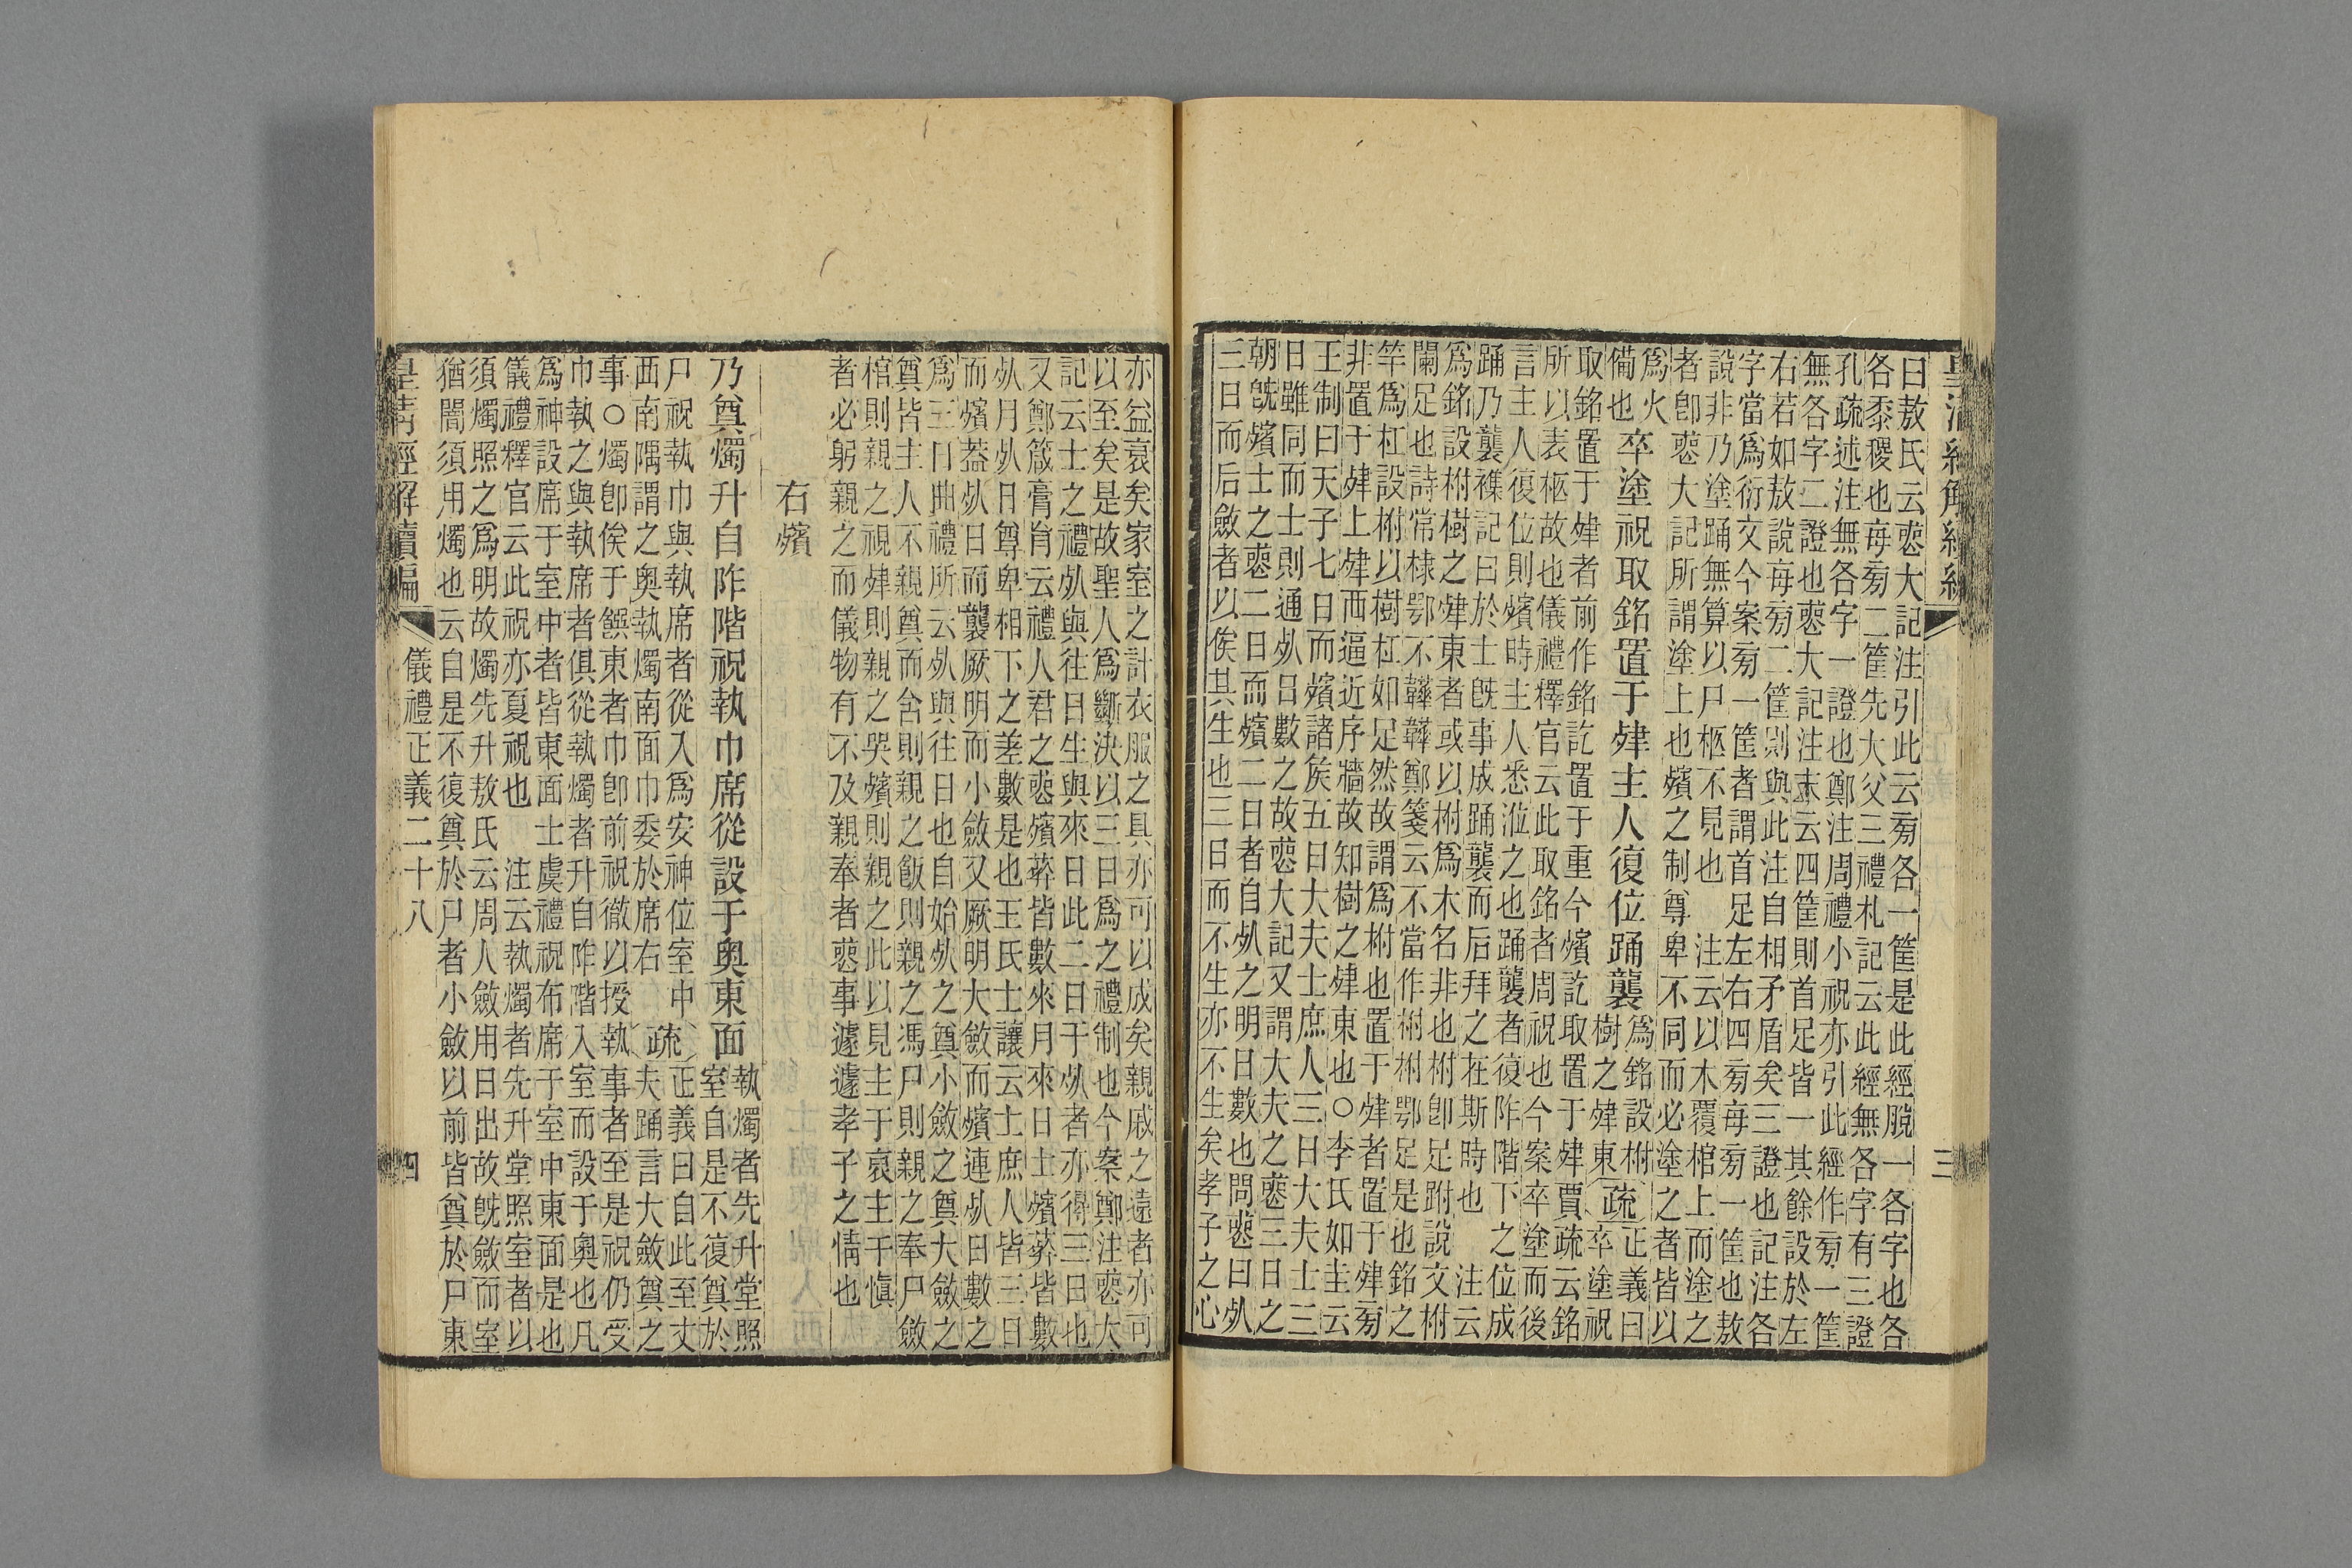 曰敖氏云喪大記注引此云旁各一筐是此經脫一各字也各
各黍稷也每旁二筐先大父三禮札記云此經無各字有三證
孔疏述注無各字一證也鄭注周禮小祝亦引此經作旁一筐
無各字二證也喪大記注末云四筐則首足皆一其餘設於左
右若如敖說每旁二筐則與此注自相矛盾矣三證也記注各
字當爲衍文今案旁一筐者謂首足左右四旁每旁一筐也敖
說非乃塗踊無算以尸柩不見也　注云以木覆棺上而塗之
者卽喪大記所謂塗上也殯之制尊卑不同而必塗之者皆以
爲火
備也
卒塗祝取銘置于肂主人復位踊襲
爲銘設柎
樹之肂東
疏
正義曰
卒塗祝
取銘置于肂者前作銘訖置于重今殯訖取置于肂賈疏云銘
所以表柩故也儀禮釋官云此取銘者周祝也今案卒塗而後
言主人復位則殯時主人悉涖之也踊襲者復阼階下之位成
踊乃襲襍記曰於士既事成踊襲而后拜之在斯時也　注云
爲銘設柎樹之肂東者或以柎爲木名非也柎卽足跗說文柎
闌足也詩常棣鄂不韡韡鄭箋云不當作柎柎鄂足是也銘之
竿爲杠設柎以樹杠如足然故謂爲柎也置于肂者置于肂旁
非置于肂上肂西逼近序牆故知樹之肂東也○李氏如圭云
王制曰天子七日而殯諸侯五日大夫士庶人三日大夫士三
日雖同而士則通𣦸日數之故喪大記又謂大夫之喪三日之
朝旣殯士之喪二日而殯二日者自𣦸之明日數也問喪曰𣦸
三日而后斂者以俟其生也三日而不生亦不生矣孝子之心
三
亦益衰矣家室之計衣服之具亦可以成矣親戚之遠者亦可
以至矣是故聖人爲斷決以三日爲之禮制也今案鄭注喪大
記云士之禮𣦸與往日生與來日此二日于𣦸者亦得三日也
又鄭箴膏肓云禮人君之喪殯葬皆數來月來日士殯葬皆數
𣦸月𣦸日尊卑相下之差數是也王氏士讓云士庶人皆三日
而殯葢𣦸日而襲厥明而小斂又厥明大斂而殯連𣦸日數之
爲三日曲禮所云𣦸與往日也自始𣦸之奠小斂之奠大斂之
奠皆主人不親奠而含則親之飯則親之馮尸則親之奉尸斂
棺則親之視肂則親之哭殯則親之此以見主于哀主于愼
者必躬親之而儀物有不及親奉者喪事遽遽孝子之情也
右殯
乃奠燭升自阼階祝執巾席從設于奧東面
執燭者先升堂照
室自是不復奠於
尸祝執巾與執席者從入爲安神位室中
西南隅謂之奧執燭南面巾委於席右
疏
正義曰自此至丈
夫踊言大斂奠之
事○燭卽俟于饌東者巾卽前祝徹以授執事者至是祝仍受
巾執之與執席者俱從執燭者升自阼階入室而設于奧也凡
爲神設席于室中者皆東面士虞禮祝布席于室中東面是也
儀禮釋官云此祝亦夏祝也　注云執燭者先升堂照室者以
須燭照之爲明故燭先升敖氏云周人斂用日出故旣斂而室
猶闇須用燭也云自是不復奠於尸者小斂以前皆奠於尸東
皇清經解續編
儀禮正義二十八
四